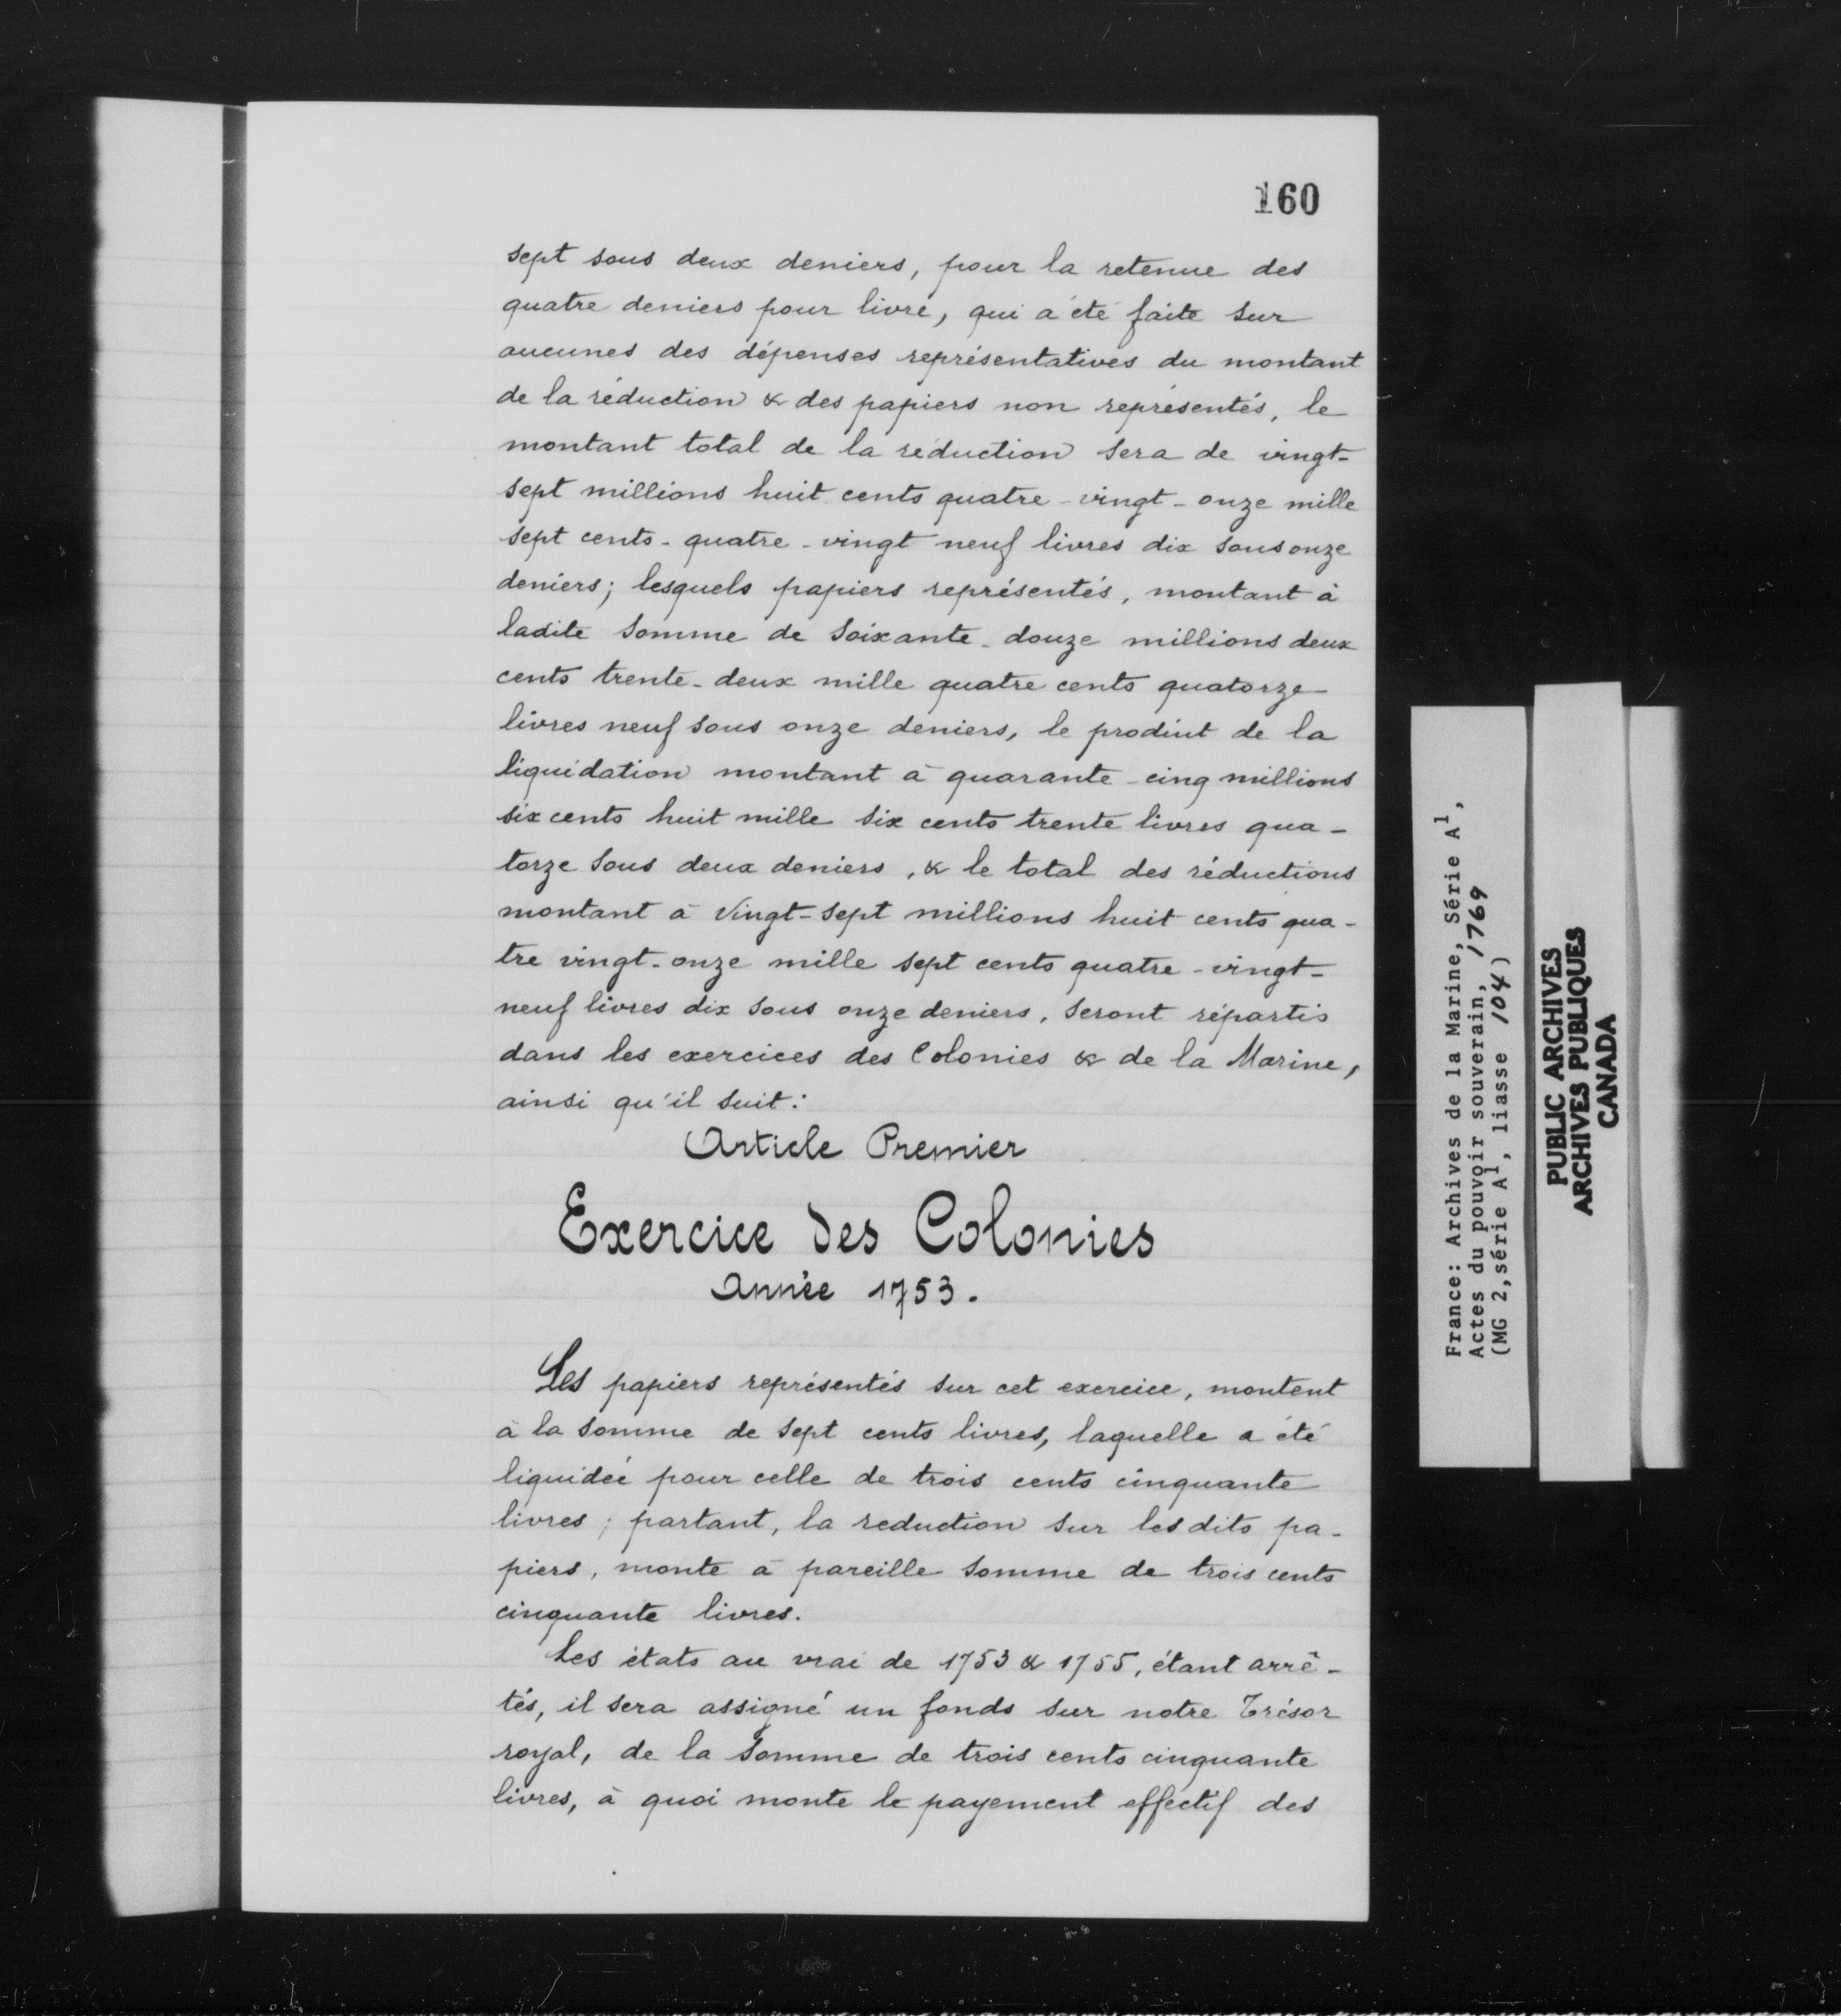 160
sept sous deux deniers, pour la retenue des
quatre deniers pour livre, qui a été faite sur
aucunes des dépenses représentatives du montant
de la réduction & des papiers non représentés, le
montant total de la réduction sera de vingt-
sept millions huit cents quatre-vingt-onze mille
sept cents-quatre-vingt neuf livres dix sous onze
deniers; lesquels papiers représentés, montant à
ladite somme de soixante-douze millions deux
cents trente-deux mille quatre cents quatorze
livres neuf sous onze deniers, le produit de la
liquidation montant à quarante-cinq millions
six cents huit mille six cents trente livres qua-
torze sous deux deniers, & le total des réductions
montant à vingt-sept millions huit cents qua-
tre vingt-onze mille sept cents quatre-vingt-
neuf livres dix sous onze deniers, seront répartis
dans les exercices des Colonies & de la Marine,
ainsi qu'il suit:
Article Premier
Exercice des Colonies
Année 1753.
Les papiers représentés sur cet exercice, montent
à la somme de sept cents livres, laquelle a été
liquidée pour celle de trois cents cinquante
livres; partant, la reduction sur les dits pa-
piers, monte à pareille somme de trois cents
cinquante livres.
Les états au vrai de 1753 & 1755, étant arrê-
tés, il sera assigné un fonds sur notre Trésor
royal, de la somme de trois cents cinquante
livres, à quoi monte le payement effectif des
France: Archives de la Marine, Série A1,
Actes du pouvoir souverain, 1769
(MG 2,série A1, liasse 104)
PUBLIC ARCHIVES
ARCHIVES PUBLIQUES
CANADA